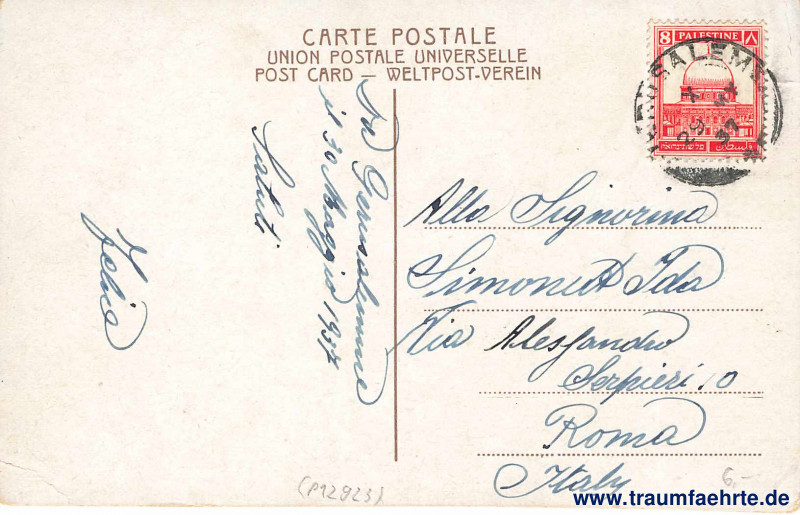 CARTE POSTALE
UNION POSTALE UNIVERSELLE
POST CARD — WELTPOST-VEREIN
8 PALESTINE ٨
JERUSALEM
29 MY
37
Da Gerusalemme
il 30 Maggio 1937
Saluti
Alla Signorina
Simonetti Ida
Via Alessandro
Serpieri 10
Roma
Italy
(P12923)
6,-
www.traumfaehrte.de